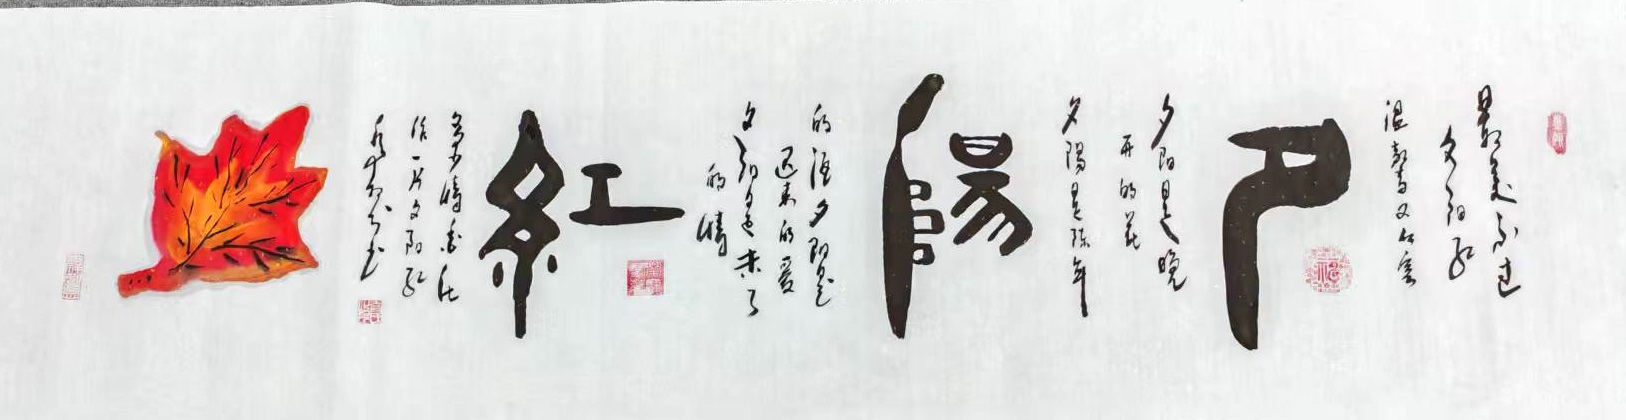 最美不过
夕阳红
温馨又从容
夕
夕阳是晚
开的花
夕阳是陈年
陽
的酒夕阳是
迟来的爱
夕阳是未了
的情
紅
多少情爱化
作一片夕阳红